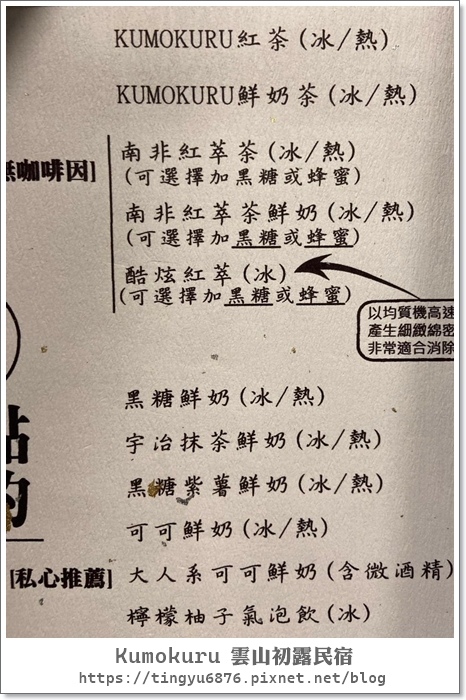 KUMOKURU紅茶(冰/熱)
KUMOKURU鮮奶茶(冰/熱)
無咖啡因]
南非紅萃茶(冰/熱)
(可選擇加黑糖或蜂蜜)
南非紅萃茶鮮奶(冰/熱)
(可選擇加黑糖或蜂蜜)
酷炫紅萃(冰)
(可選擇加黑糖或蜂蜜)
以均質機高速
產生細緻綿密
非常適合消除
黑糖鮮奶(冰/熱)
宇治抹茶鮮奶(冰/熱)
黑糖紫薯鮮奶(冰/熱)
可可鮮奶(冰/熱)
[私心推薦] 大人系可可鮮奶(含微酒精)
檸檬柚子氣泡飲(冰)
Kumokuru 雲山初露民宿
https://tingyu6876.pixnet.net/blog